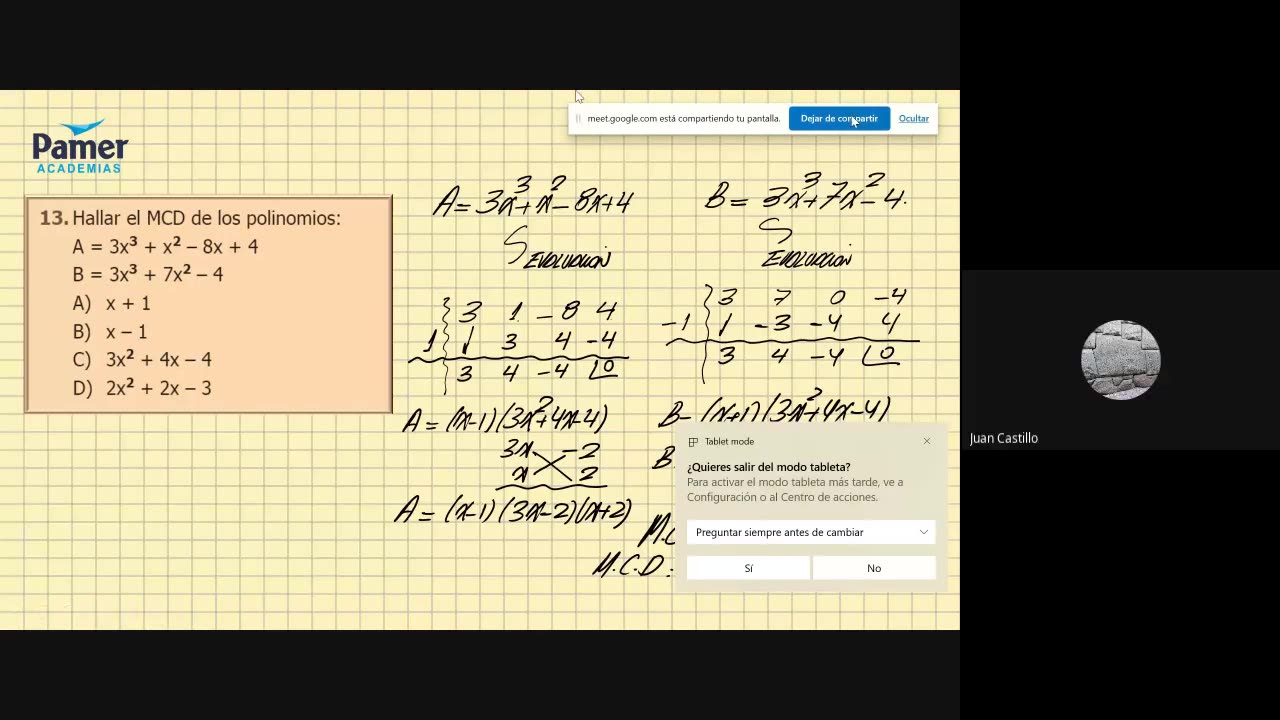 meet.google.com está compartiendo tu pantalla. Dejar de compartir Ocultar
Pamer
ACADEMIAS
13. Hallar el MCD de los polinomios:
A = 3x³ + x² – 8x + 4
B = 3x³ + 7x² – 4
A) x + 1
B) x – 1
C) 3x² + 4x – 4
D) 2x² + 2x – 3
A = 3x³+x²-8x+4
EVOLUCIÓN
3 1 -8 4
1 3 4 -4
3 4 -4 0
A = (x-1)(3x²+4x-4)
3x -2
x 2
A = (x-1)(3x-2)(x+2)
B = 3x³+7x²-4.
EVOLUCIÓN
3 7 0 -4
-1 -3 -4 4
3 4 -4 0
B = (x+1)(3x²+4x-4)
B
M.C
M.C.D:
Tablet mode
¿Quieres salir del modo tableta?
Para activar el modo tableta más tarde, ve a
Configuración o al Centro de acciones.
Preguntar siempre antes de cambiar
Sí No
Juan Castillo